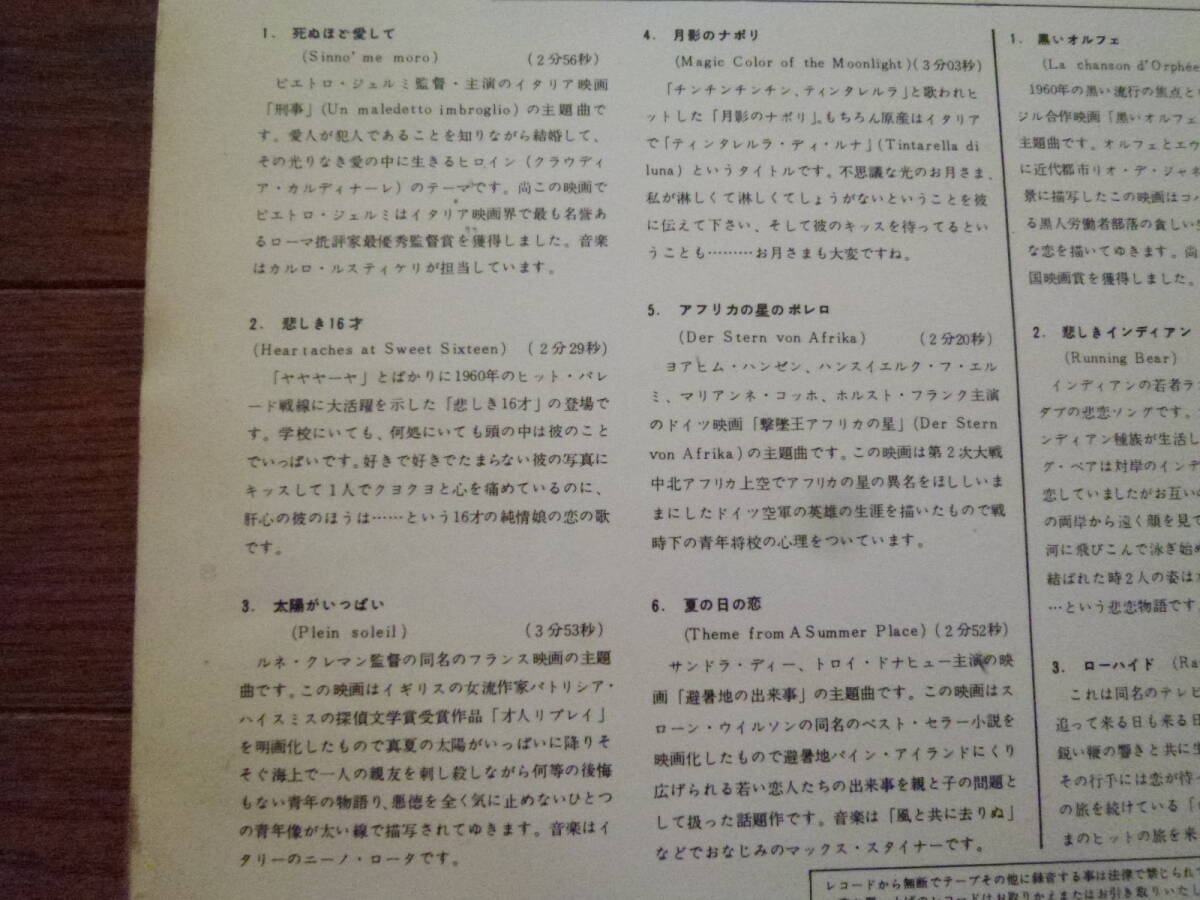 1. 死ぬほど愛して
(Sinno' me moro) (2分56秒)
ピエトロ・ジェルミ監督・主演のイタリア映画
「刑事」(Un maledetto imbroglio) の主題曲で
す。愛人が犯人であることを知りながら結婚して、
その光りなき愛の中に生きるヒロイン (クラウディ
ア・カルディナーレ) のテーマです。尚この映画で
ピエトロ・ジェルミはイタリア映画界で最も名誉あ
るローマ批評家最優秀監督賞を獲得しました。音楽
はカルロ・ルスティケリが担当しています。
2. 悲しき16才
(Heartaches at Sweet Sixteen) (2分29秒)
「ヤヤヤーヤ」とばかりに1960年のヒット・パレ
ード戦線に大活躍を示した「悲しき16才」の登場で
す。学校にいても、何処にいても頭の中は彼のこと
でいっぱいです。好きで好きでたまらない彼の写真に
キッスして1人でクヨクヨと心を痛めているのに、
肝心の彼のほうは……という16才の純情娘の恋の歌
です。
3. 太陽がいっぱい
(Plein soleil) (3分53秒)
ルネ・クレマン監督の同名のフランス映画の主題
曲です。この映画はイギリスの女流作家パトリシア・
ハイスミスの探偵文学賞受賞作品「才人リプレイ」
を明画化したもので真夏の太陽がいっぱいに降りそ
そぐ海上で一人の親友を刺し殺しながら何等の後悔
もない青年の物語り、悪徳を全く気に止めないひとつ
の青年像が太い線で描写されてゆきます。音楽はイ
タリーのニーノ・ロータです。
4. 月影のナポリ
(Magic Color of the Moonlight)(3分03秒)
「チンチンチンチン、ティンタレルラ」と歌われヒ
ットした「月影のナポリ」。もちろん原産はイタリア
で「ティンタレルラ・ディ・ルナ」(Tintarella di
luna) というタイトルです。不思議な光のお月さま、
私が淋しくて淋しくてしょうがないということを彼
に伝えて下さい、そして彼のキッスを待ってるとい
うことも………お月さまも大変ですね。
5. アフリカの星のボレロ
(Der Stern von Afrika) (2分20秒)
ヨアヒム・ハンゼン、ハンスイエルク・フ・エル
ミ、マリアンネ・コッホ、ホルスト・フランク主演
のドイツ映画「撃墜王アフリカの星」(Der Stern
von Afrika) の主題曲です。この映画は第2次大戦
中北アフリカ上空でアフリカの星の異名をほしいま
まにしたドイツ空軍の英雄の生涯を描いたもので戦
時下の青年将校の心理をついています。
6. 夏の日の恋
(Theme from A Summer Place) (2分52秒)
サンドラ・ディー、トロイ・ドナヒュー主演の映
画「避暑地の出来事」の主題曲です。この映画はス
ローン・ウイルソンの同名のベスト・セラー小説を
映画化したもので避暑地パイン・アイランドにくり
広げられる若い恋人たちの出来事を親と子の問題と
して扱った話題作です。音楽は「風と共に去りぬ」
などでおなじみのマックス・スタイナーです。
1. 黒いオルフェ
(La chanson d'Orphée
1960年の黒い流行の焦点とい
ジル合作映画「黒いオルフェ
主題曲です。オルフェとエウ
に近代都市リオ・デ・ジャネ
景に描写したこの映画はコバ
る黒人労働者部落の貧しい
な恋を描いてゆきます。尚
国映画賞を獲得しました。
2. 悲しきインディアン
(Running Bear)
インディアンの若者ラ
ダブの悲恋ソングです。
ンディアン種族が生活し
グ・ベアは対岸のインデ
恋していましたがお互い
の両岸から遠く顔を見て
河に飛びこんで泳ぎ始め
結ばれた時2人の姿は
…という悲恋物語です。
3. ローハイド (Ra
これは同名のテレビ
追って来る日も来る日
鋭い鞭の響きと共に
その行手には恋が待
の旅を続けている「
まのヒットの旅を来
レコードから無断でテープその他に録音する事は法律で禁じられて
のレコードはお取りかえまたはお引き取りいたし